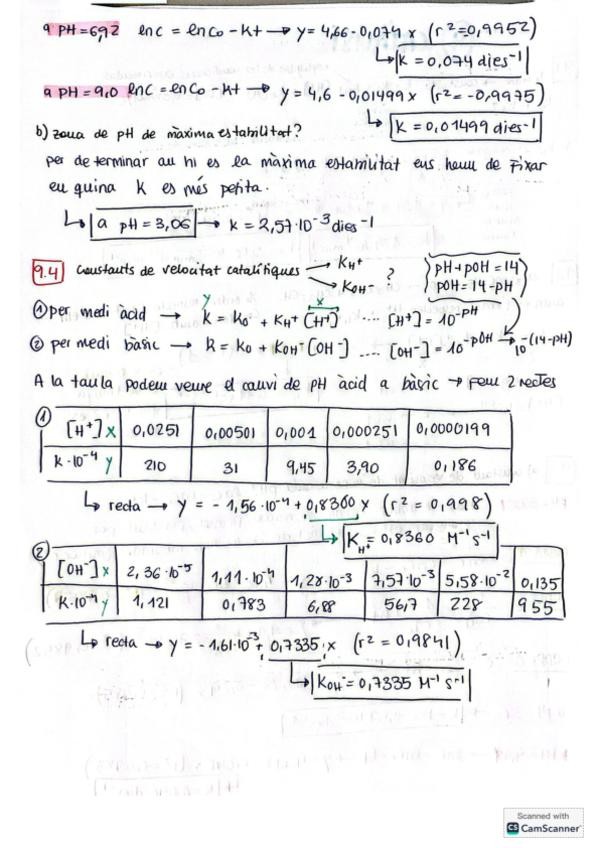 a pH=6,92 lnc = lnCo - Kt → y = 4,66 - 0,074 x (r² = 0,9952)
↳ K = 0,074 dies⁻¹
a pH = 9,0 lnc = lnCo - Kt → y = 4,6 - 0,01499 x (r² = -0,9975)
↳ K = 0,01499 dies⁻¹
b) zona de pH de màxima estabilitat?
per determinar on hi es la màxima estabilitat ens hem de fixar
en quina K es més petita.
↳ a pH = 3,06 → k = 2,57·10⁻³ dies⁻¹
9.4 Constants de velocitat catalítiques → KH⁺ → KOH⁻ ?
pH+pOH=14
pOH=14-pH
① per medi àcid → k = Ko + KH⁺ [H⁺] ···· [H⁺] = 10⁻pH
y x
② per medi bàsic → k = Ko + KOH⁻ [OH⁻] .... [OH⁻] = 10⁻pOH → 10⁻(14-pH)
A la taula podem veure el canvi de pH àcid a bàsic → Fem 2 rectes
①
[H⁺] x 0,0251 0,00501 0,001 0,000251 0,0000199
K·10⁻⁴ y 210 31 9,45 3,90 0,186
↳ recta → y = - 1,56·10⁻⁴ + 0,8360 x (r² = 0,998)
↳ KH⁺ = 0,8360 M⁻¹s⁻¹
②
[OH⁻] x 2,36·10⁻⁵ 1,11·10⁻⁴ 1,28·10⁻³ 7,57·10⁻³ 5,58·10⁻² 0,135
K·10⁻⁴ y 1,121 0,783 6,88 56,7 228 955
↳ recta → y = - 1,61·10⁻³ + 0,7335 x (r² = 0,9841)
↳ KOH⁻ = 0,7335 M⁻¹ s⁻¹
Scanned with
CS CamScanner